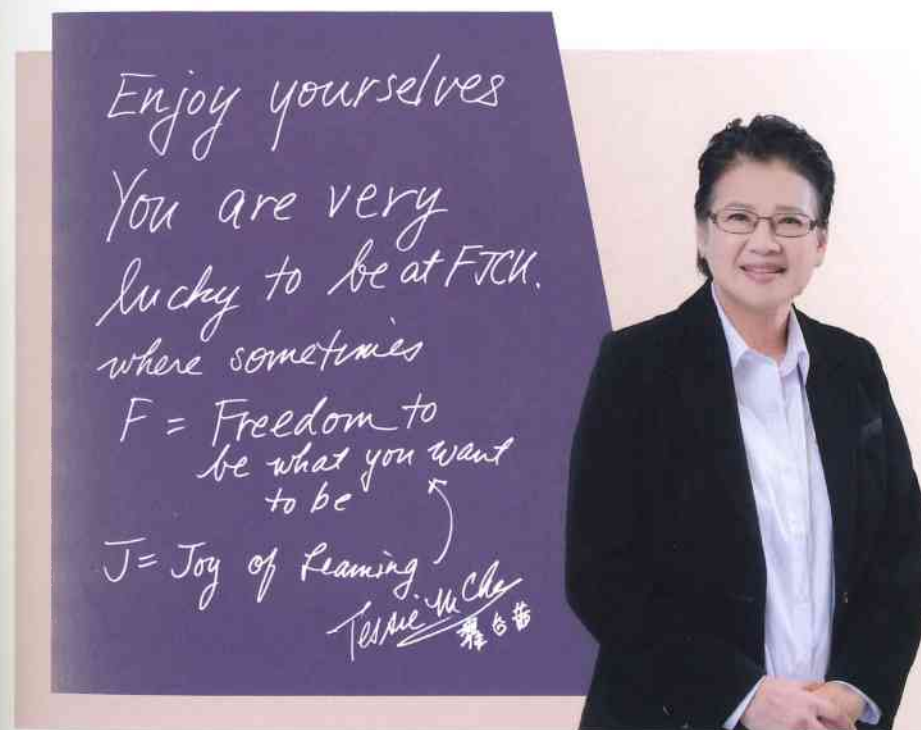 Enjoy yourselves
You are very
lucky to be at FJCU.
where sometimes
F = Freedom to
be what you want
to be
J = Joy of Learning
Tessie